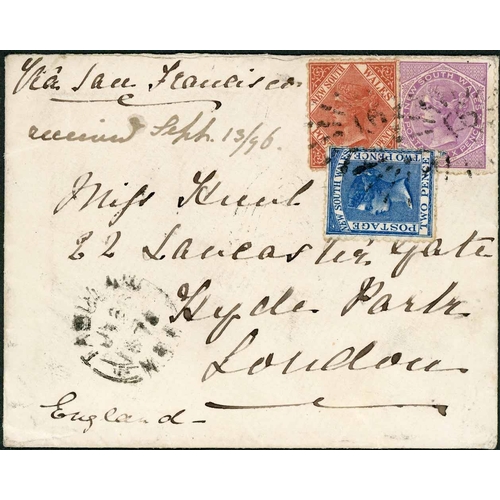 Via San Francisco
received Sept. 13/76.
Miss Hunt
22 Lancaster Gate
Hyde Park
London
England
NEW SOUTH WALES
NEW SOUTH WALES
NEW SOUTH WALES
POSTAGE
TWO PENCE
TWO PENCE